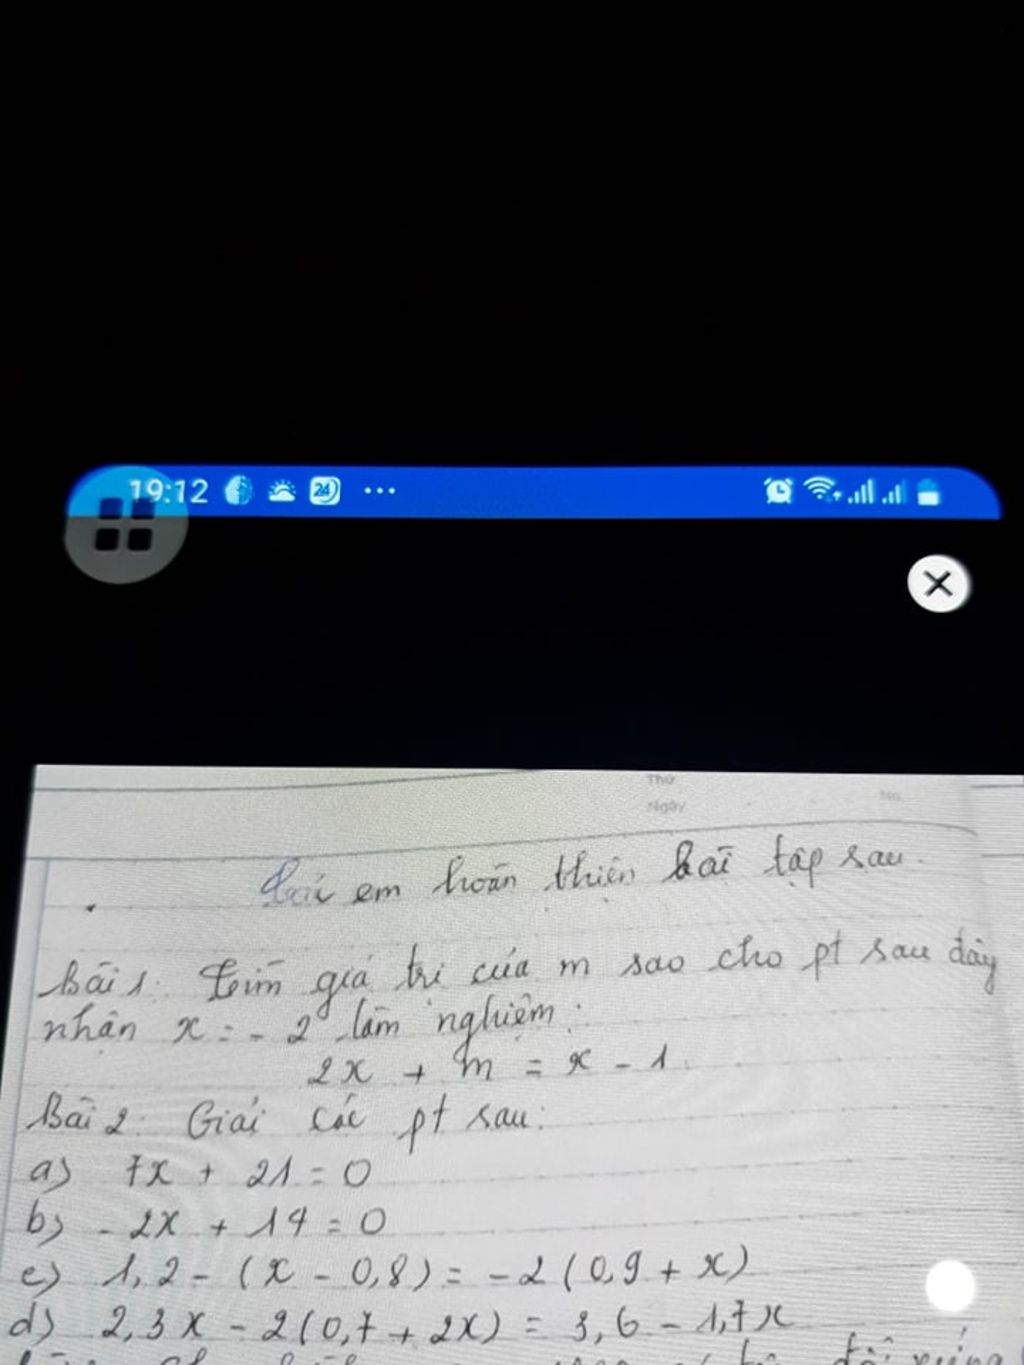 19:12 24
Thứ
Ngày No.
Các em hoàn thiện bài tập sau.
Bài 1: Tìm giá trị của m sao cho pt sau đây
nhận x = - 2 làm nghiệm:
2x + m = x - 1
Bài 2: Giải các pt sau:
a) 7x + 21 = 0
b) - 2x + 14 = 0
c) 1,2 - (x - 0,8) = -2(0,9 + x)
d) 2,3x - 2(0,7 + 2x) = 3,6 - 1,7x